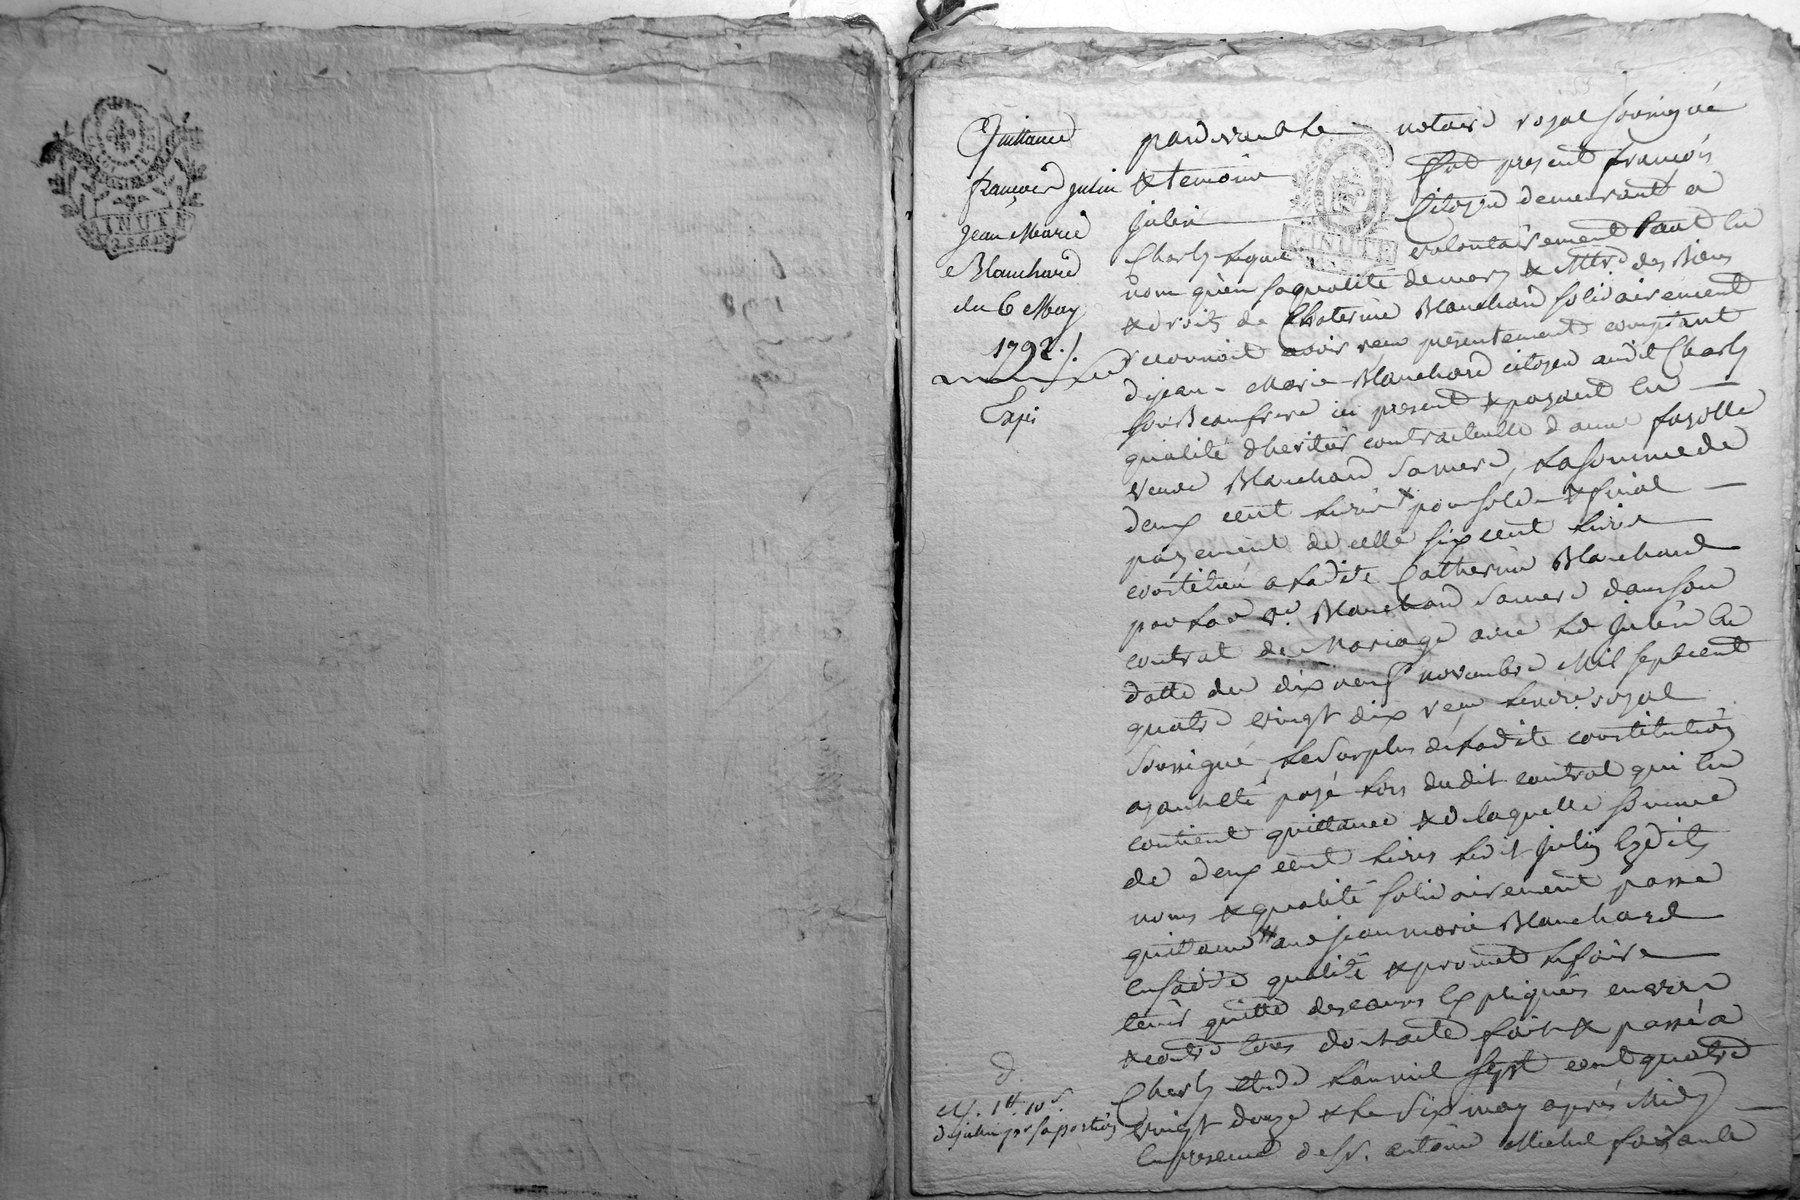 MINUTE
2.S.6.D
Quittance
françois julin
jean Marie
Blanchard
du 6 May
1792 ./.
Expé
pardevant le notaire royal soussigné
& temoins fut present françois
julin Citoyen demeurant a
MINUTE
Charly lequel volontairement tant en
nom qu'en sa qualité de mary & Mtre des Biens
& droits de Chaterine Blanchard solidairement
reconnoit avoir reçu presentement comptant
de jean-Marie Blanchard citoyen audit Charly
son Beaufrere ici present & payant en
qualité d'heritier contractuelle d'anne fayolle
veuve Blanchard sa mere, la somme de
deux cent livres pour solde & final
payement de celle six cent livres
constituée a ladite Catherine Blanchard
par lad. ve. Blanchard sa mere dans son
contrat de Mariage avec led julin en
datte du dix neuf novembre Mil sept cent
quatre vingt dix reçu le no.re royal
soussigné, le surplus de ladite constitution
ayant eté payé lors dudit contrat qui en
contient quittance & de laquelle somme
de deux cent livres ledit julin esdits
noms & qualité solidairement passe
quittance aud jean marie Blanchard
en sadite qualité & promet le faire
tenir quitte des causes expliquées envers
& contre tous dont acte fait & passé a
Charly etude l'an mil sept cent quatre
vingt douze & le six may après Midy
en presence de Sr. antoine Michel
d.
1# 10s.
de julin pr sa portion